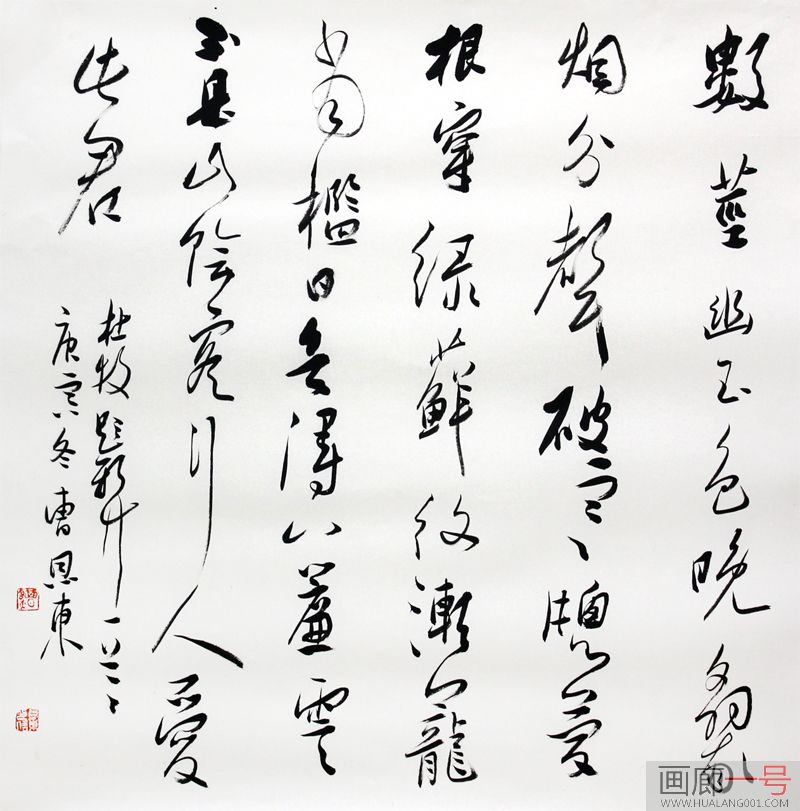 數莖幽玉色晚夕翠
烟分聲破寒牕夢
根穿绿蘚紋漸籠
當檻日欲碍入簾雲
不是山陰客何人愛
此君
杜牧題新竹一首
庚寅冬曹恩東
画廊一号
WWW.HUALANG001.COM